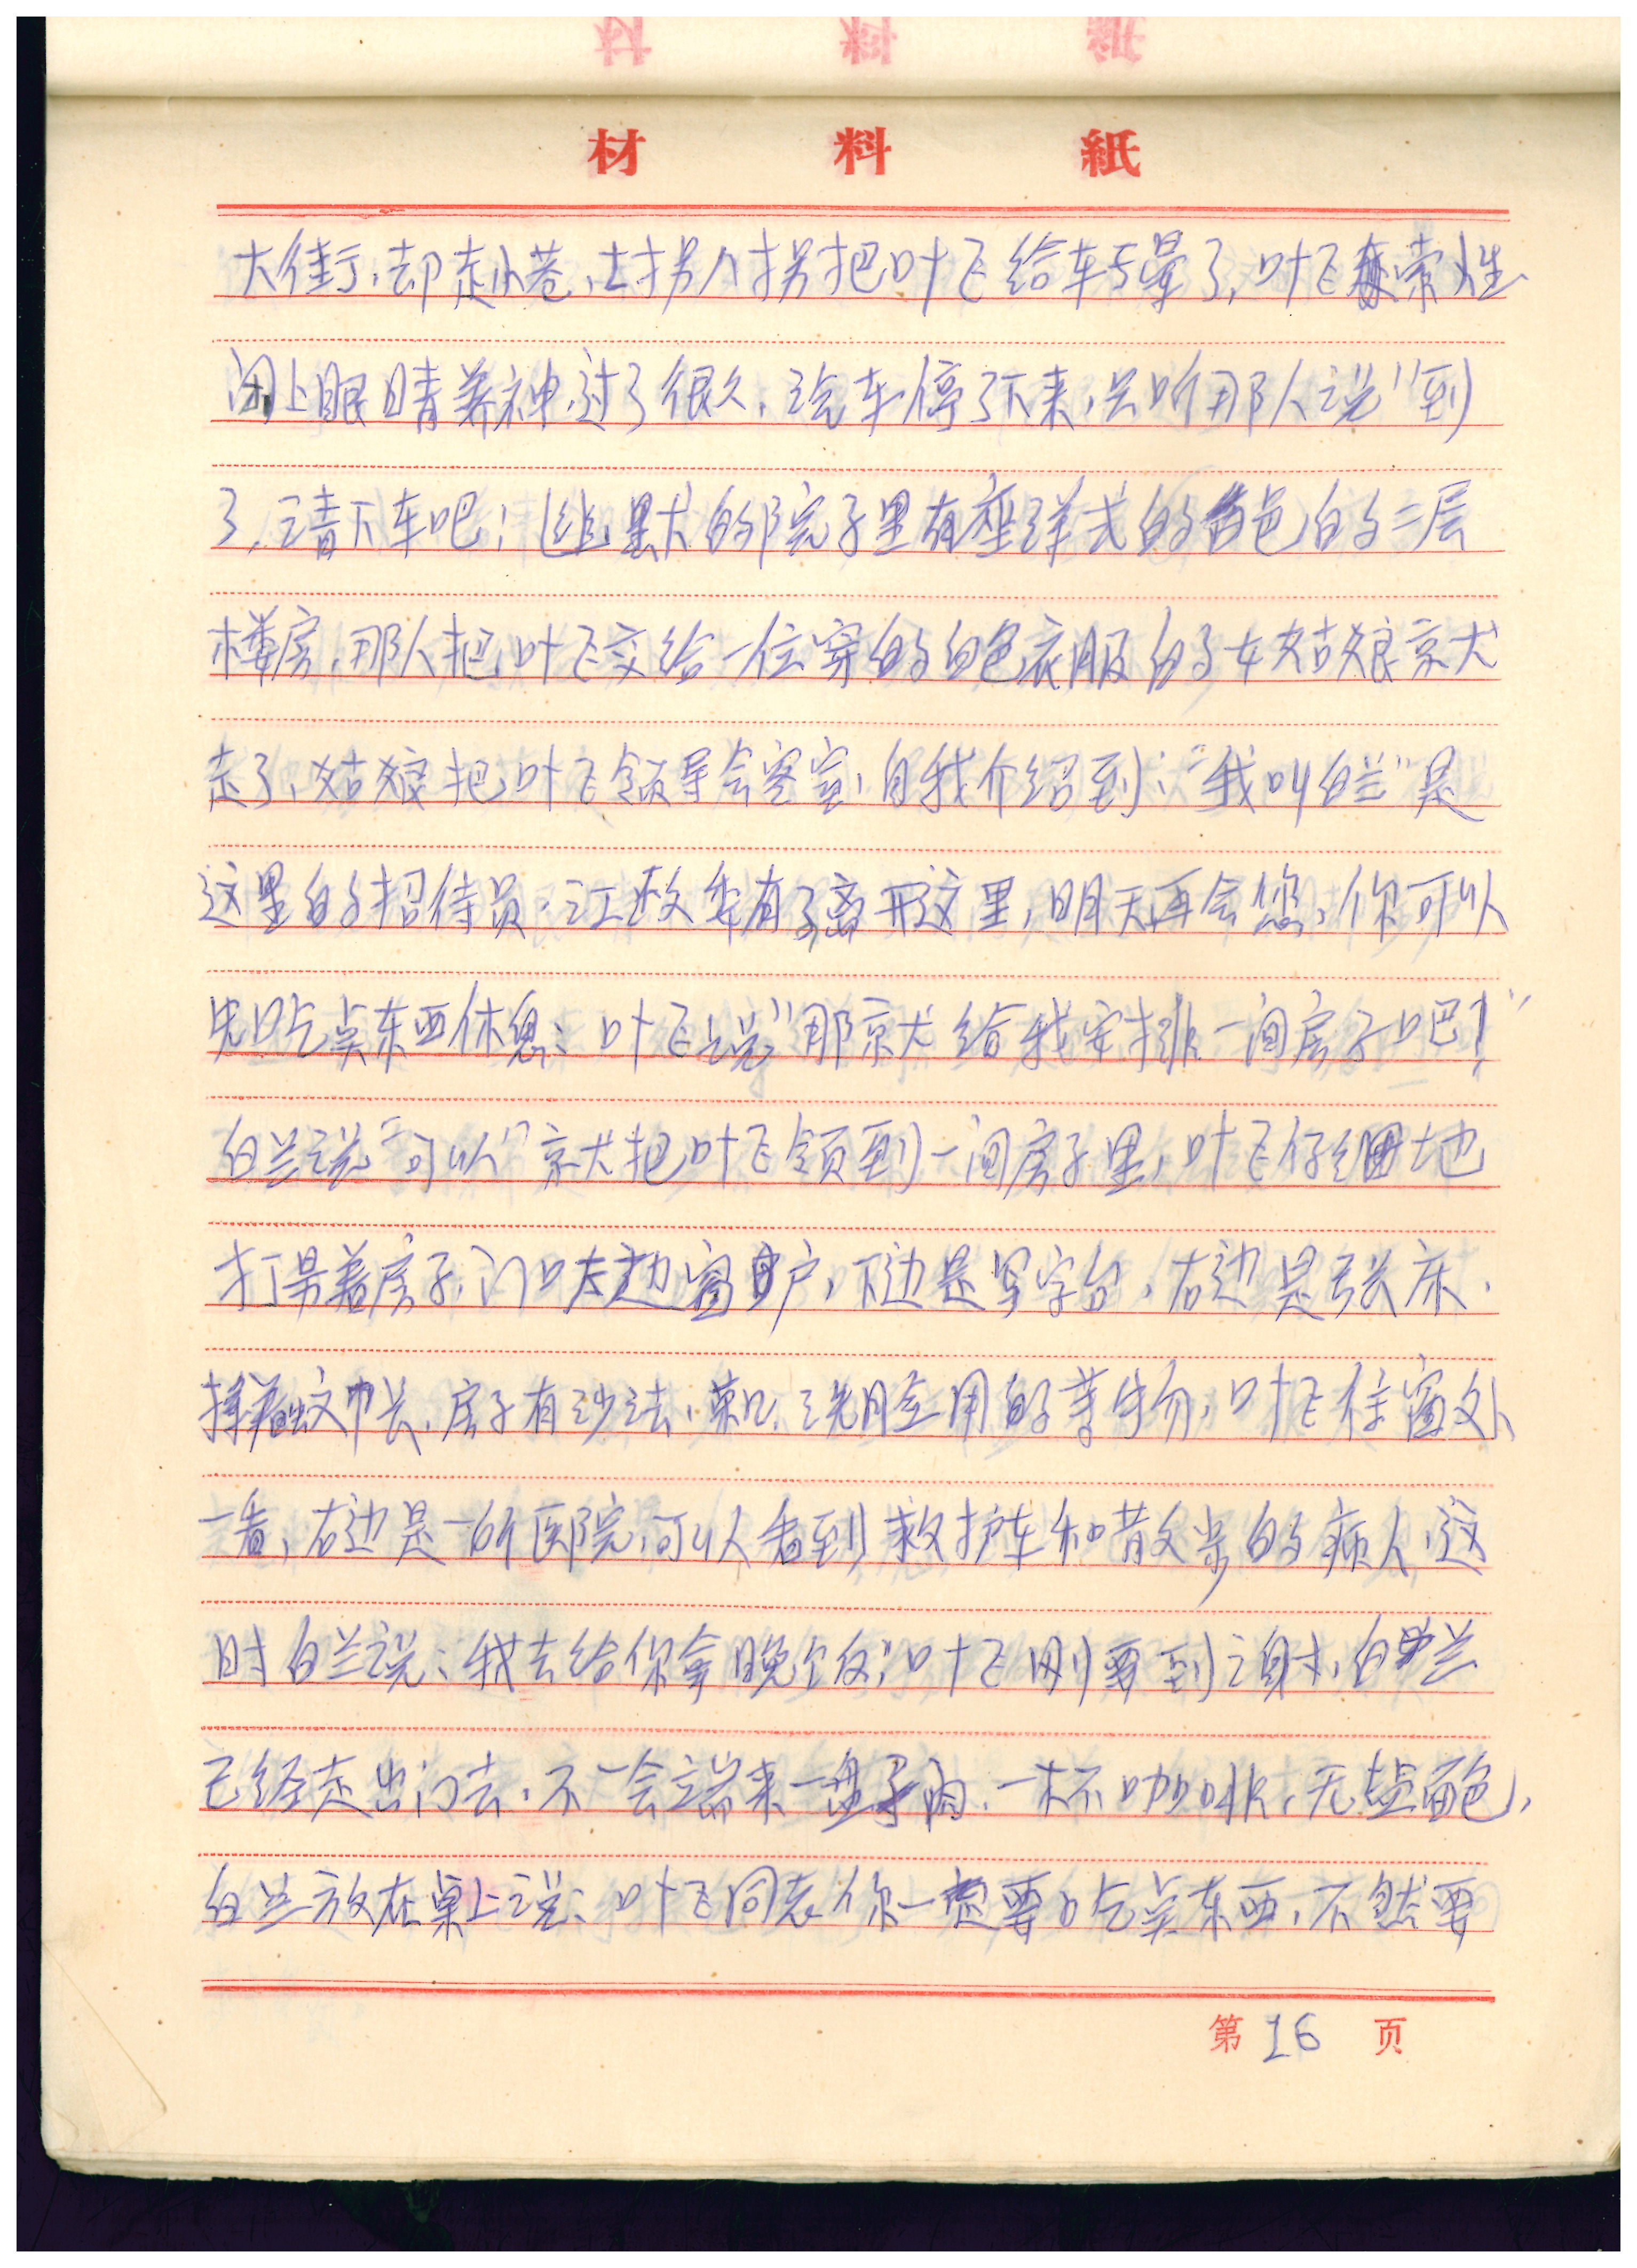 材料紙
大街,却走小巷,七拐八拐把叶飞给转晕了,叶飞索性
闭上眼睛养神,过了很久,汽车停了下来,只听那人说"到
了,请下车吧!幽默的院子里有座洋式的白色的二层
楼房,那人把叶飞交给一位穿的白色衣服的女姑娘就
走了,姑娘把叶飞领导会客室,自我介绍到:"我叫白兰"是
这里的招待员,江政委有事离开这里,明天再会您,你可以
先吃点东西休息;叶飞说"那就给我安排一间房子吧!"
白兰说"可以"就把叶飞领到一间房子里,叶飞仔细地
打量着房子,门口左边窗户,下边是写字台,右边是张床,
撑着蚊帐,房子有沙法,茶几,洗脸用的等物,叶飞往窗外
一看,右边是一所医院,可以看到救护车和散步的病人,这
时白兰说:我去给你拿晚饭;叶飞刚要到谢,白兰
已经走出门去,不一会端来一盘子肉,一杯咖啡,无盐面包,
白兰放在桌上说:叶飞同志你一定要吃点东西,不然要
第16页